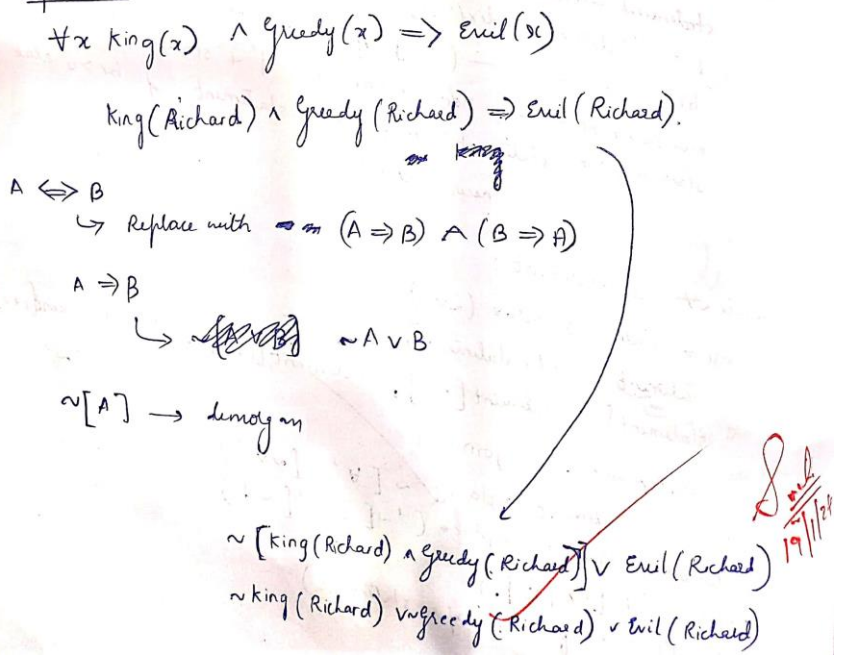 ∀x King(x) ∧ Greedy(x) => Evil(x)
King(Richard) ∧ Greedy(Richard) => Evil(Richard).
A <=> B
↳ Replace with (A => B) ∧ (B => A)
A => B
↳ ~A ∨ B
~[A] → demorgan
~[King(Richard) ∧ Greedy(Richard)] ∨ Evil(Richard)
~King(Richard) ∨~Greedy(Richard) ∨ Evil(Richard)